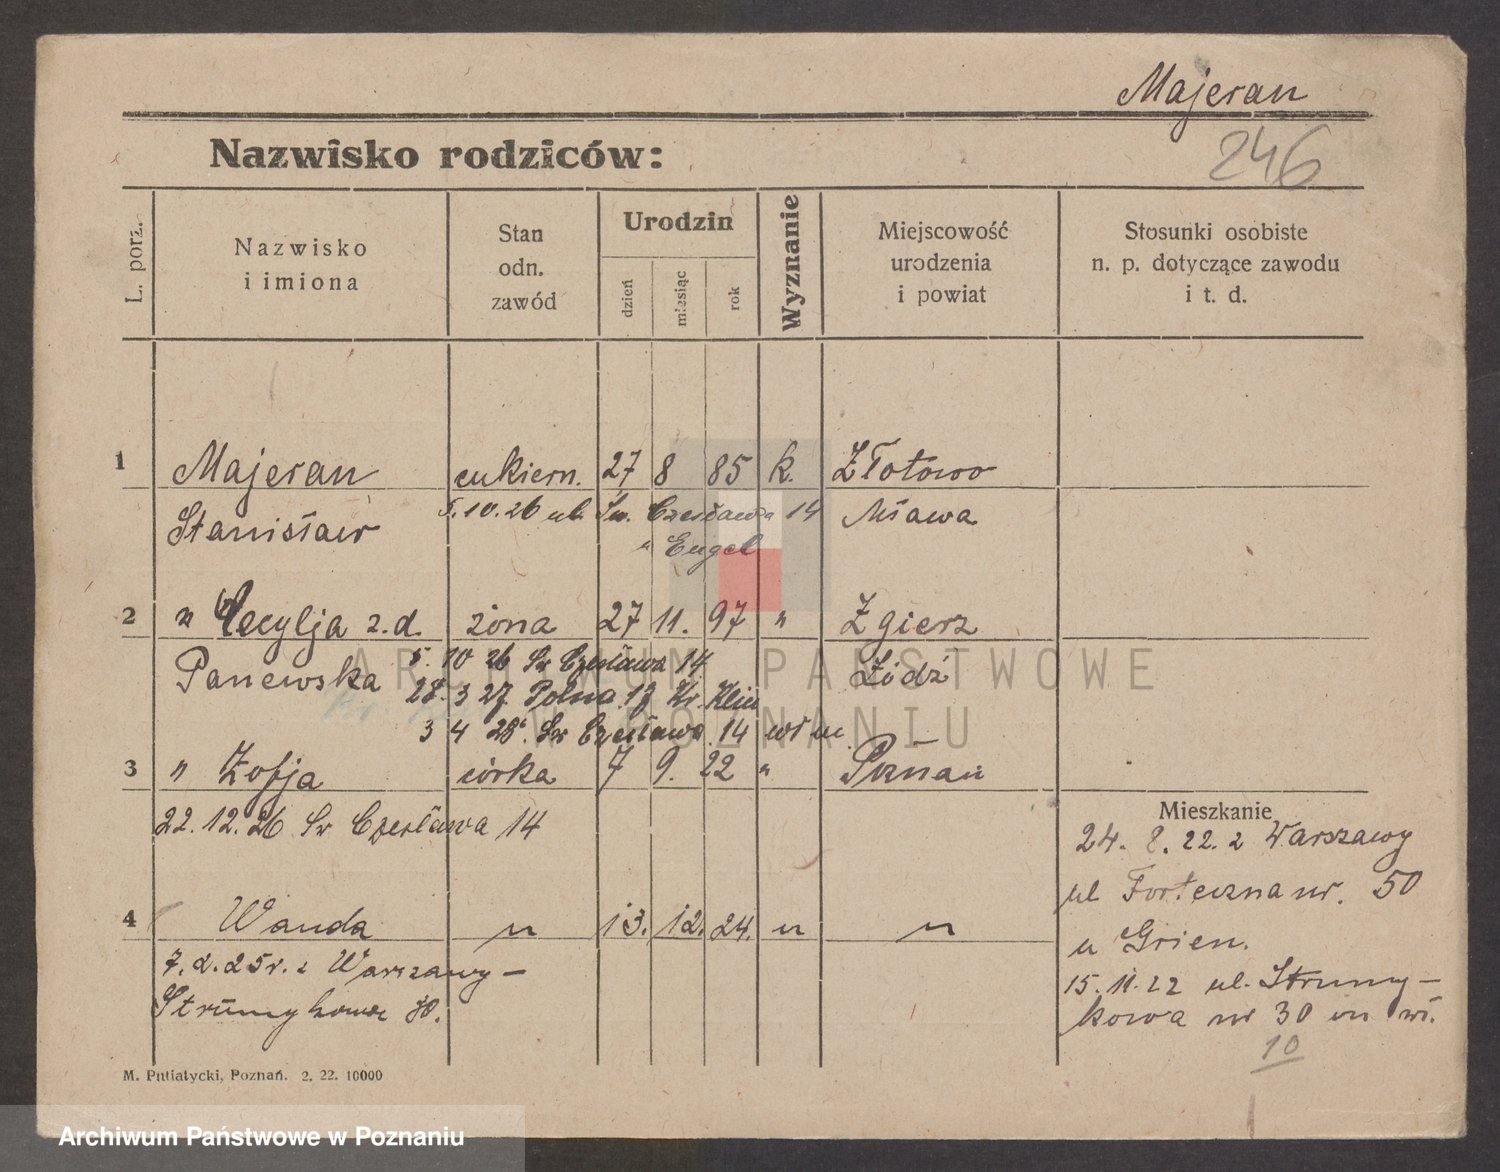 Majeran
246
Nazwisko rodziców:
L. porz.
Nazwisko
i imiona
Stan
odn.
zawód
Urodzin
dzień
miesiąc
rok
Wyznanie
Miejscowość
urodzenia
i powiat
Stosunki osobiste
n. p. dotyczące zawodu
i t. d.
1 Majeran cukiern. 27 8 85 k. Złotowo
Stanisław 5.10.26 ul. Św. Czesława 14 Mława
" Engel
2 " Cecylja z.d. żona 27 11. 97 " Zgierz
Panewska 5. 10 26 Św Czesława 14 Łódź
28. 3 27. Polna 17 Kr.
3 4 28. Św Czesława 14
3 " Zofja córka 7 9. 22 " Poznań
22.12.26 Św Czesława 14
4 Wanda " 13. 12. 24. " "
7.2.25r. z Warszawy –
Strumykowa 30.
Mieszkanie
24. 8. 22. z Warszawy
ul Forteczna nr. 50
u Grien.
15.11.22 ul. Strumy–
kowa nr 30
10
M. Putiatycki, Poznań. 2. 22. 10000
ARCHIWUM PAŃSTWOWE
W POZNANIU
Archiwum Państwowe w Poznaniu